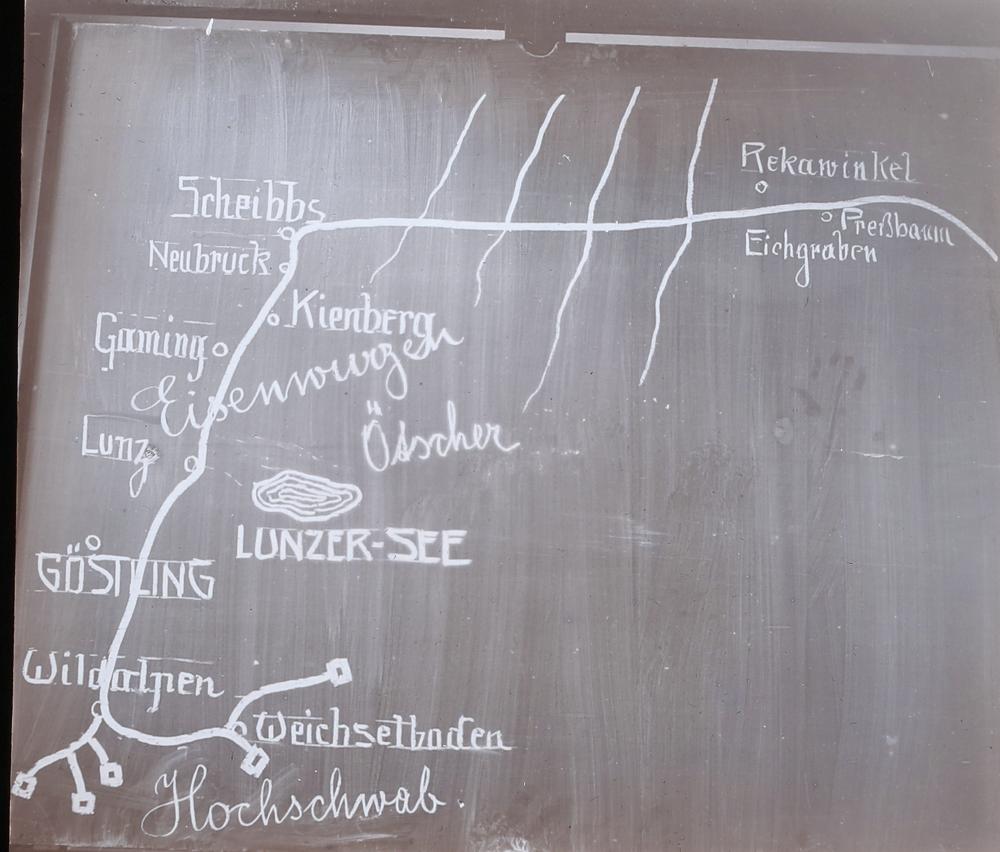 Rekawinkel
Scheibbs
Preßbaum
Eichgraben
Neubruck
Kienberg
Gaming
Eisenwurzen
Ötscher
Lunz
LUNZER-SEE
GÖSTLING
Wildalpen
Weichselboden
Hochschwab.